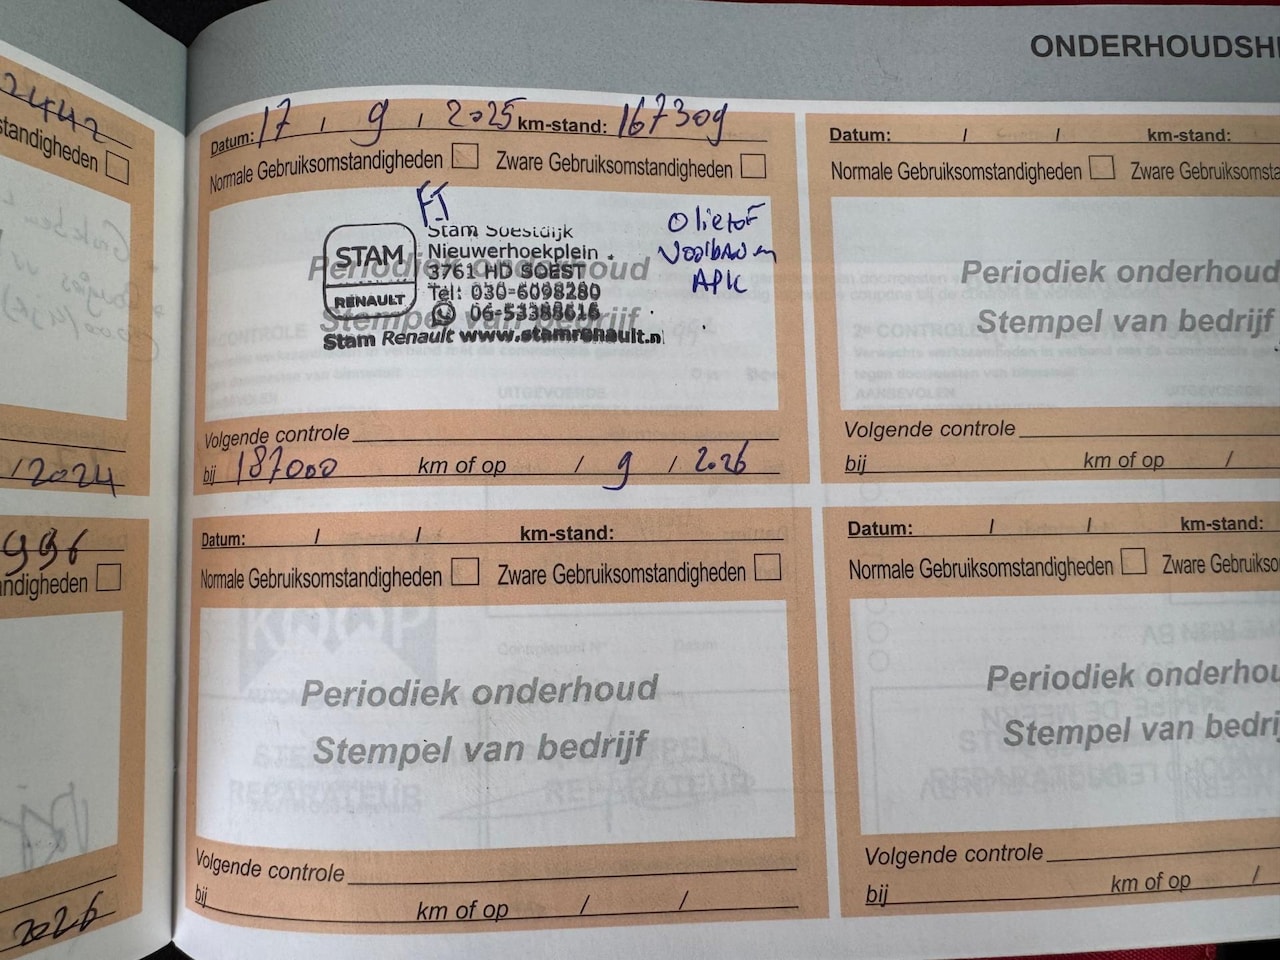 ONDERHOUDSH
2442
standigheden
2024
996
ndigheden
2026
Datum: 17 / 9 / 2025 km-stand: 167309
Normale Gebruiksomstandigheden Zware Gebruiksomstandigheden
FJ
STAM
RENAULT
Stam Soestdijk
Nieuwerhoekplein
3761 HD SOEST
Tel: 030-6098280
06-53388616
Stam Renault www.stamrenault.nl
Olie+oF
APK
Periodiek onderhoud
Stempel van bedrijf
Volgende controle
bij 187000 km of op / 9 / 2026
Datum: / / km-stand:
Normale Gebruiksomstandigheden Zware Gebruiksomsta
Periodiek onderhoud
Stempel van bedrijf
Volgende controle
bij km of op /
Datum: / / km-stand:
Normale Gebruiksomstandigheden Zware Gebruiksomstandigheden
Periodiek onderhoud
Stempel van bedrijf
Volgende controle
bij km of op / /
Datum: / / km-stand:
Normale Gebruiksomstandigheden Zware Gebruikso
Periodiek onderhou
Stempel van bedrij
Volgende controle
bij km of op /